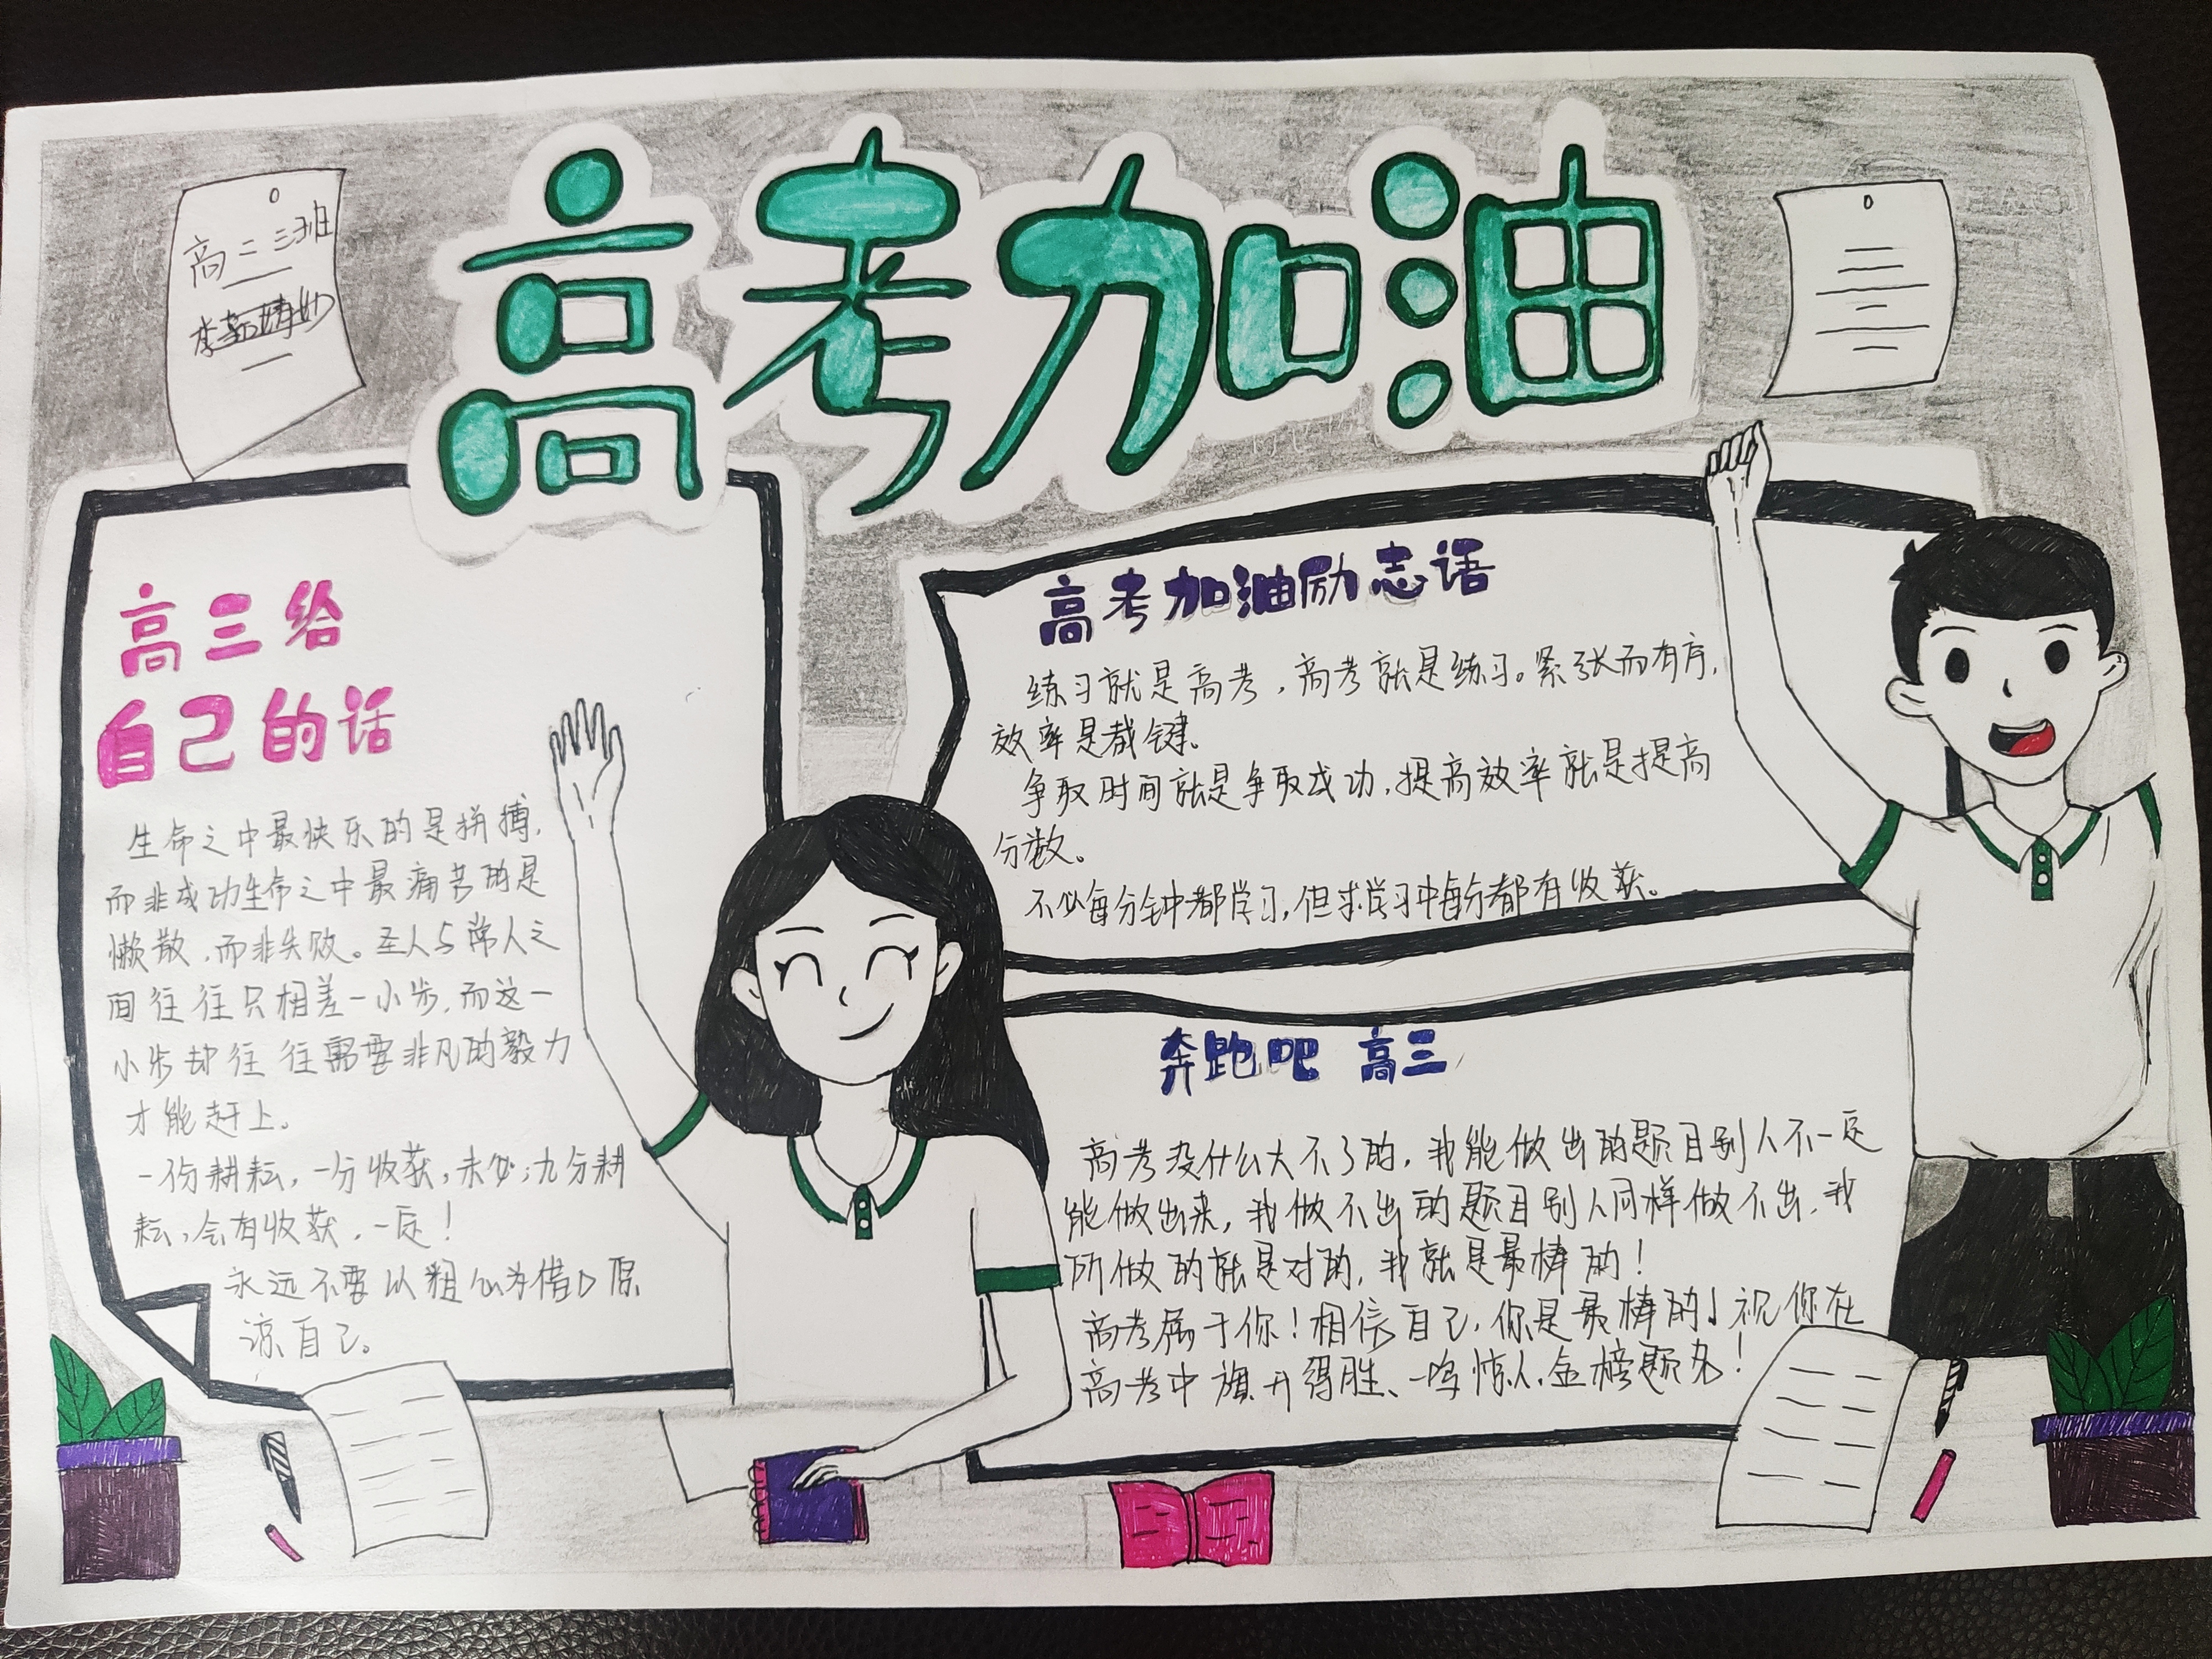 高考加油
高二三班
高三给
自己的话
生命之中最快乐的是拼搏,
而非成功生命之中最痛苦的是
懒散,而非失败。圣人与常人之
间往往只相差一小步,而这一
小步却往往需要非凡的毅力
才能赶上。
一份耕耘,一分收获,未必;九分耕
耘,会有收获,一定!
永远不要以粗心为借口原
谅自己。
高考加油励志语
练习就是高考,高考就是练习。紧张而有序,
效率是关键。
争取时间就是争取成功,提高效率就是提高
分数。
不必每分钟都学习,但求学习中每分都有收获。
奔跑吧 高三
高考没什么大不了的,我能做出的题目别人不一定
能做出来,我做不出的题目别人同样做不出,我
所做的就是对的,我就是最棒的!
高考属于你!相信自己,你是最棒的!祝你在
高考中旗开得胜、一鸣惊人,金榜题名!